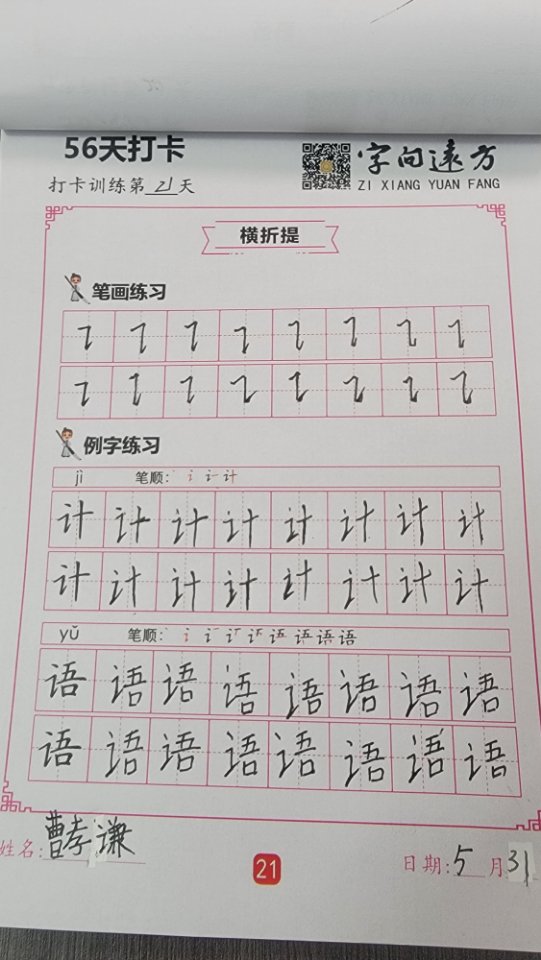 56天打卡
字向遠方
打卡训练第21天
ZI XIANG YUAN FANG
横折提
笔画练习
例字练习
jì 笔顺: 讠计
计 计 计 计 计 计 计 计
计 计 计 计 计 计 计 计
yǔ 笔顺: 语 语 语
语 语 语 语 语 语 语 语
语 语 语 语 语 语 语 语
姓名: 曹孝谦
21
日期: 5月31